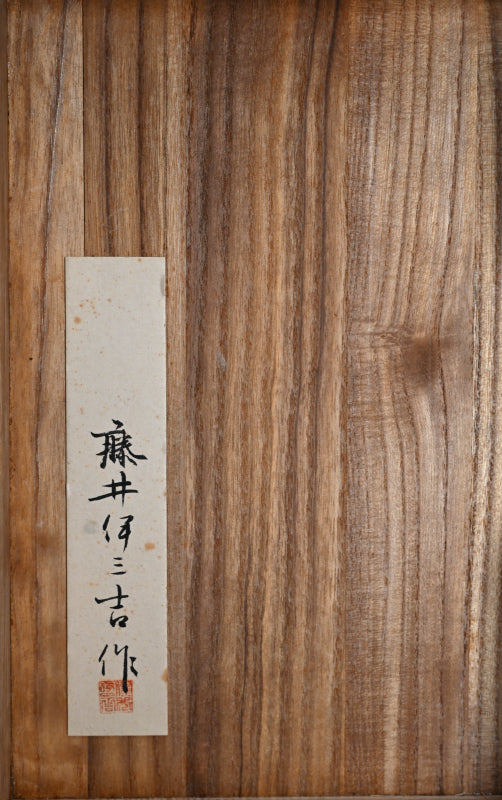 藤井伊三吉作